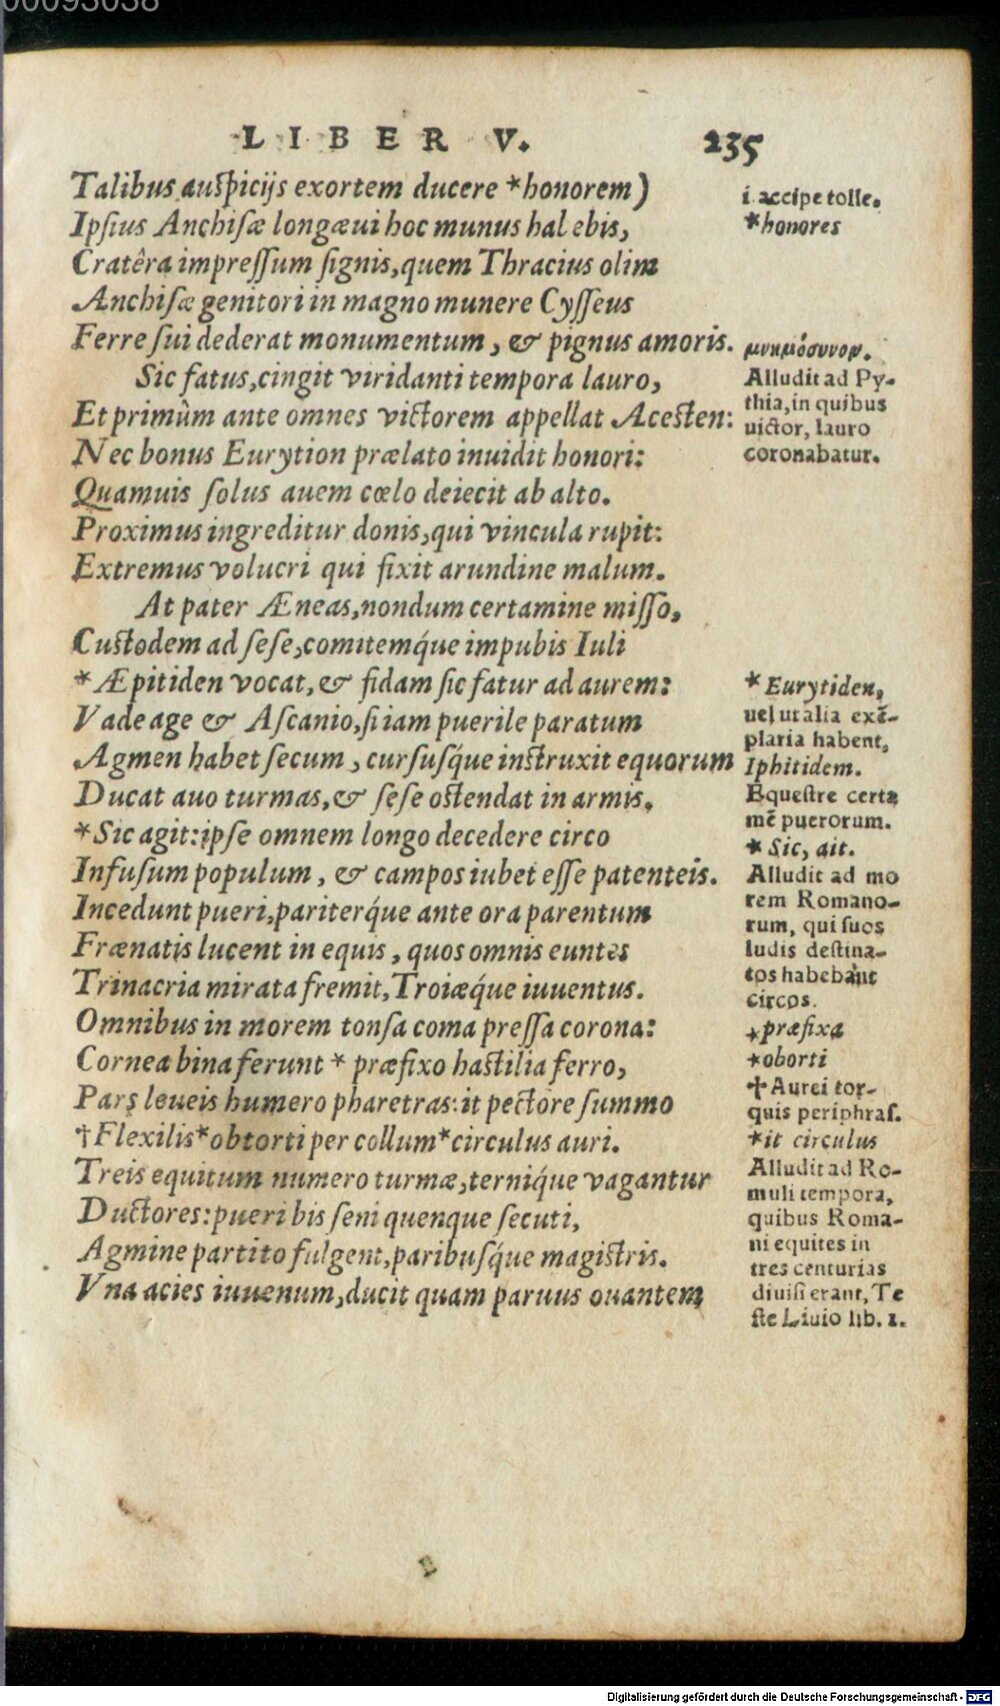 00093038
LIBER V. 235
Talibus auspicijs exortem ducere *honorem)
Ipsius Anchisæ longæui hoc munus hal ebis,
Cratêra impressum signis, quem Thracius olim
Anchisæ genitori in magno munere Cysseus
Ferre sui dederat monumentum, & pignus amoris.
Sic fatus, cingit viridanti tempora lauro,
Et primùm ante omnes victorem appellat Acesten:
Nec bonus Eurytion prælato inuidit honori:
Quamuis solus auem cœlo deiecit ab alto.
Proximus ingreditur donis, qui vincula rupit:
Extremus volucri qui fixit arundine malum.
At pater Æneas, nondum certamine misso,
Custodem ad sese, comitemq́ue impubis Iuli
*Æpitiden vocat, & fidam sic fatur ad aurem:
Vade age & Ascanio, si iam puerile paratum
Agmen habet secum, cursusq́ue instruxit equorum
Ducat auo turmas, & sese ostendat in armis.
*Sic agit: ipse omnem longo decedere circo
Infusum populum, & campos iubet esse patenteis.
Incedunt pueri, pariterq́ue ante ora parentum
Frænatis lucent in equis, quos omnis euntes
Trinacria mirata fremit, Troiæq́ue iuuentus.
Omnibus in morem tonsa coma pressa corona:
Cornea bina ferunt * præfixo hastilia ferro,
Pars leueis humero pharetras: it pectore summo
†Flexilis *obtorti per collum *circulus auri.
Treis equitum numero turmæ, terniq́ue vagantur
Ductores: pueri bis seni quenque secuti,
Agmine partito fulgent, paribusq́ue magistris.
Vna acies iuuenum, ducit quam paruus ouantem
i. accipe tolle.
*honores
μνημόσυνον.
Alludit ad Py-
thia, in quibus
uictor, lauro
coronabatur.
*Eurytiden,
uel ut alia exē-
plaria habent,
Iphitidem.
Equestre certa
mē puerorum.
* Sic, ait.
Alludit ad mo
rem Romano-
rum, qui suos
ludis destina-
tos habebant
circos.
*præfixa
*oborti
†Aurei tor-
quis periphras.
*it circulus
Alludit ad Ro-
muli tempora,
quibus Roma-
ni equites in
tres centurias
diuisi erant, Te
ste Liuio lib. 1.
Digitalisierung gefördert durch die Deutsche Forschungsgemeinschaft - DFG